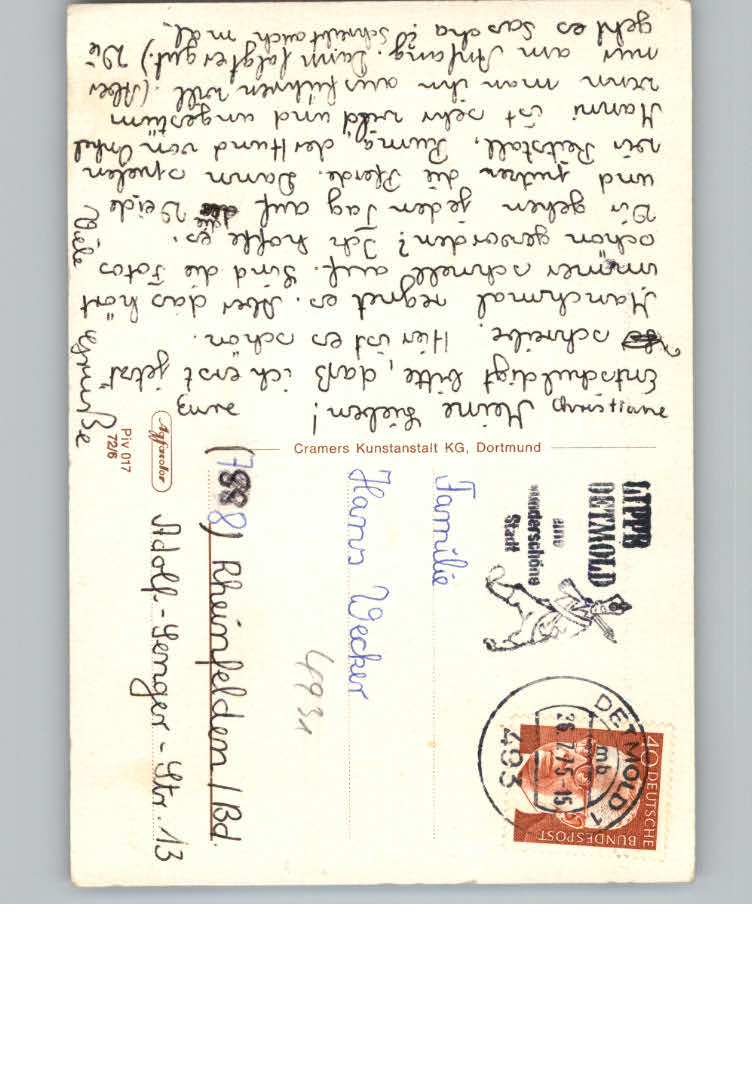 Meine Lieben!
Entschuldigt bitte, daß ich erst jetzt
schreibe. Hier ist es schön.
Manchmal regnet es. Aber das hört
immer schnell auf. Sind die Fotos
schon geworden? Ich hoffe es.
Wir gehen jeden Tag auf die Weide
und putzen die Pferde. Dann spielen
wir Reitstall. Puma, der Hund von Onkel
Manni ist sehr wild und ungestüm
wenn man ihn ausführen will. (Aber
nur am Anfang. Dann folgt er gut.) Wie
geht es Sascha? Schreibt auch mal.
Viele Grüße
Eure Christiane
Cramers Kunstanstalt KG, Dortmund
Agfacolor
Piv 017
72/6
LIPPE
DETMOLD
eine
wunderschöne
Stadt
DETMOLD 1
mb
26.7.75-15
493
40 DEUTSCHE
BUNDESPOST
Familie
Hans Wecker
4931
(7888) Rheinfelden/Bd.
Adolf-Senger-Str. 13